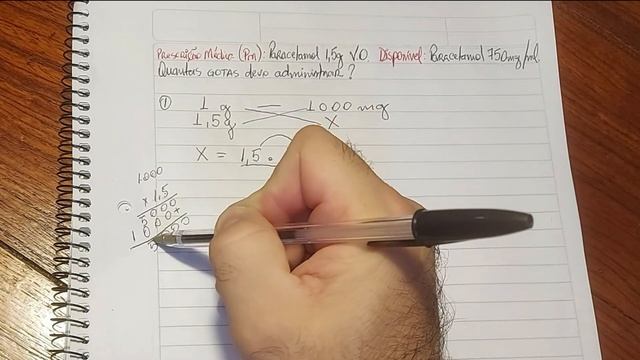 Prescrição Médica (PM): Paracetamol 1,5g V.O. Disponível: Paracetamol 750mg/ml.
Quantas GOTAS devo administrar?
① 1 g — 1000 mg
1,5g X
X = 1,5 .
1000
x 1,5
5000
1000+